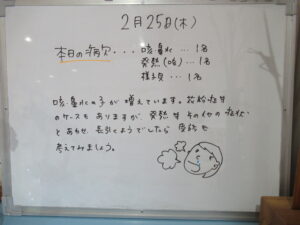 2月25日(木)
本日の病欠・・・咳・鼻水…1名
発熱(0才)…1名
様子見…1名
咳・鼻水の子が増えています。花粉症等
のケースもありますが、発熱等その他の症状
とあわせ、長引くようでしたら受診も
考えてみましょう。